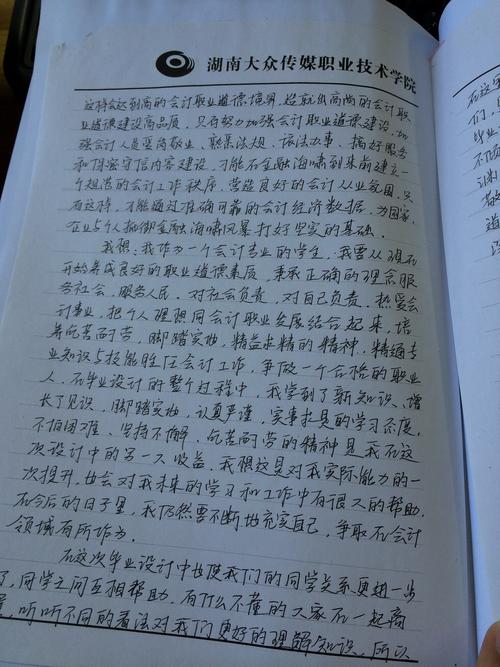 湖南大众传媒职业技术学院
这样会达到高的会计职业道德境界,超就出高尚的会计职
业道德建设高品质,只有努力加强会计职业道德建设,加
强会计人员爱岗敬业、熟悉法规、依法办事、搞好服务
和保密守信内容建设,才能在金融海啸到来前建立一
个规范的会计工作秩序,营造良好的会计从业氛围,只
有这样,才能通过准确可靠的会计经济数据,为国家、
企业与个人抵御金融海啸风暴打好坚实的基础。
我想:我作为一个会计专业的学生,我要从现在
开始养成良好的职业道德素质,秉承正确的理念服
务社会,服务人民,对社会负责,对自己负责,热爱会
计事业,把个人理想同会计职业发展结合起来,培
养吃苦而劳,脚踏实地,精益求精的精神,精通专
业知识与技能胜任会计工作,争做一个合格的职业
人。在毕业设计的整个过程中,我学到了新知识、增
长了见识,脚踏实地,认真严谨,实事求是的学习态度,
不怕困难、坚持不懈、吃苦耐劳的精神是我在这
次设计中的另一大收益。我想这是对我实际能力的一
次提升,也会对我未来的学习和工作中有很大的帮助。
在今后的日子里,我仍然要不断地充实自己,争取在会计
领域有所作为。
在这次毕业设计中也使我们的同学关系更进一步
了,同学之间互相帮助,有什么不懂的大家在一起商
量,听听不同的看法对我们更好的理解知识,所以